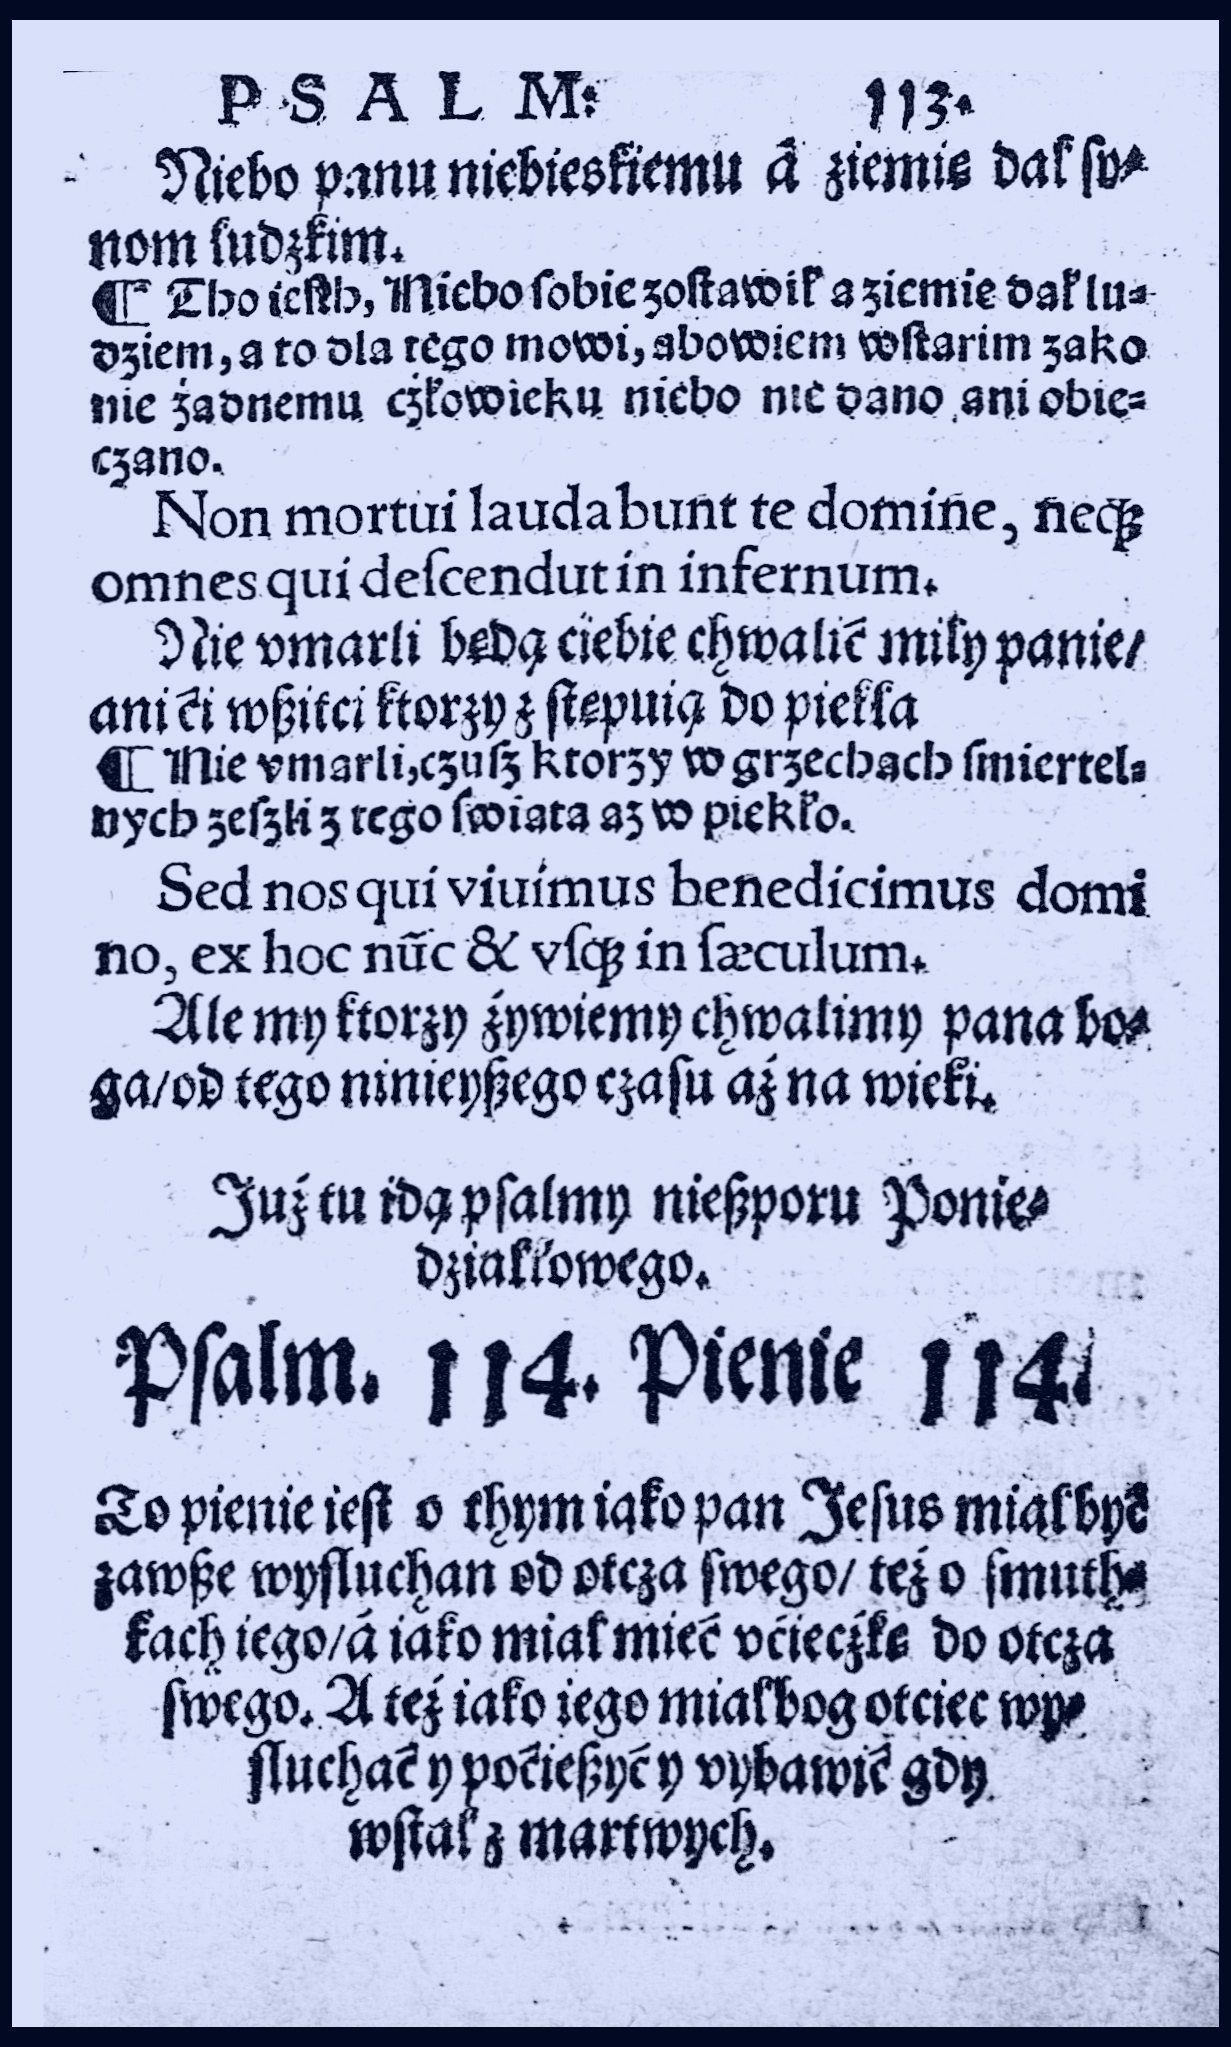 PSALM: 113.
Niebo panu niebieskiemu á ziemię dał sy⸗
nom ludzkim.
¶ Tho iesth, Niebo sobie zostawił a ziemie dał lu⸗
dziem, a to dla tego mowi, abowiem wstarim zako
nie żadnemu człowieku niebo nie dano ani obie⸗
czano.
Non mortui laudabunt te domine, neqꝫ
omnes qui deſcendut in infernum.
Nie vmarli będą ciebie chwalić miły panie/
ani ći wßitci ktorzy z stępuią do piekła
¶ Nie vmarli, czusz ktorzy w grzechach smiertel⸗
nych zeszli z tego swiata az w piekło.
Sed nos qui viuimus benedicimus domi
no, ex hoc nūc & vſqꝫ in ſæculum.
Ale my ktorzy żywiemy chwalimy pana bo⸗
ga/od tego ninieyßego czasu aż na wieki.
Już tu idą psalmy nießporu Ponie⸗
działkowego.
Psalm. 114. Pienie 114.
To pienie iest o thym iako pan Jesus miał być
zawße wysłuchan od otcza swego/ też o smuth⸗
kach iego/á iako miał mieć vćieczkę do otcza
swego. A też iako iego miał bog otciec wy⸗
słuchać y poćießyć y vybawić gdy
wstał z martwych.